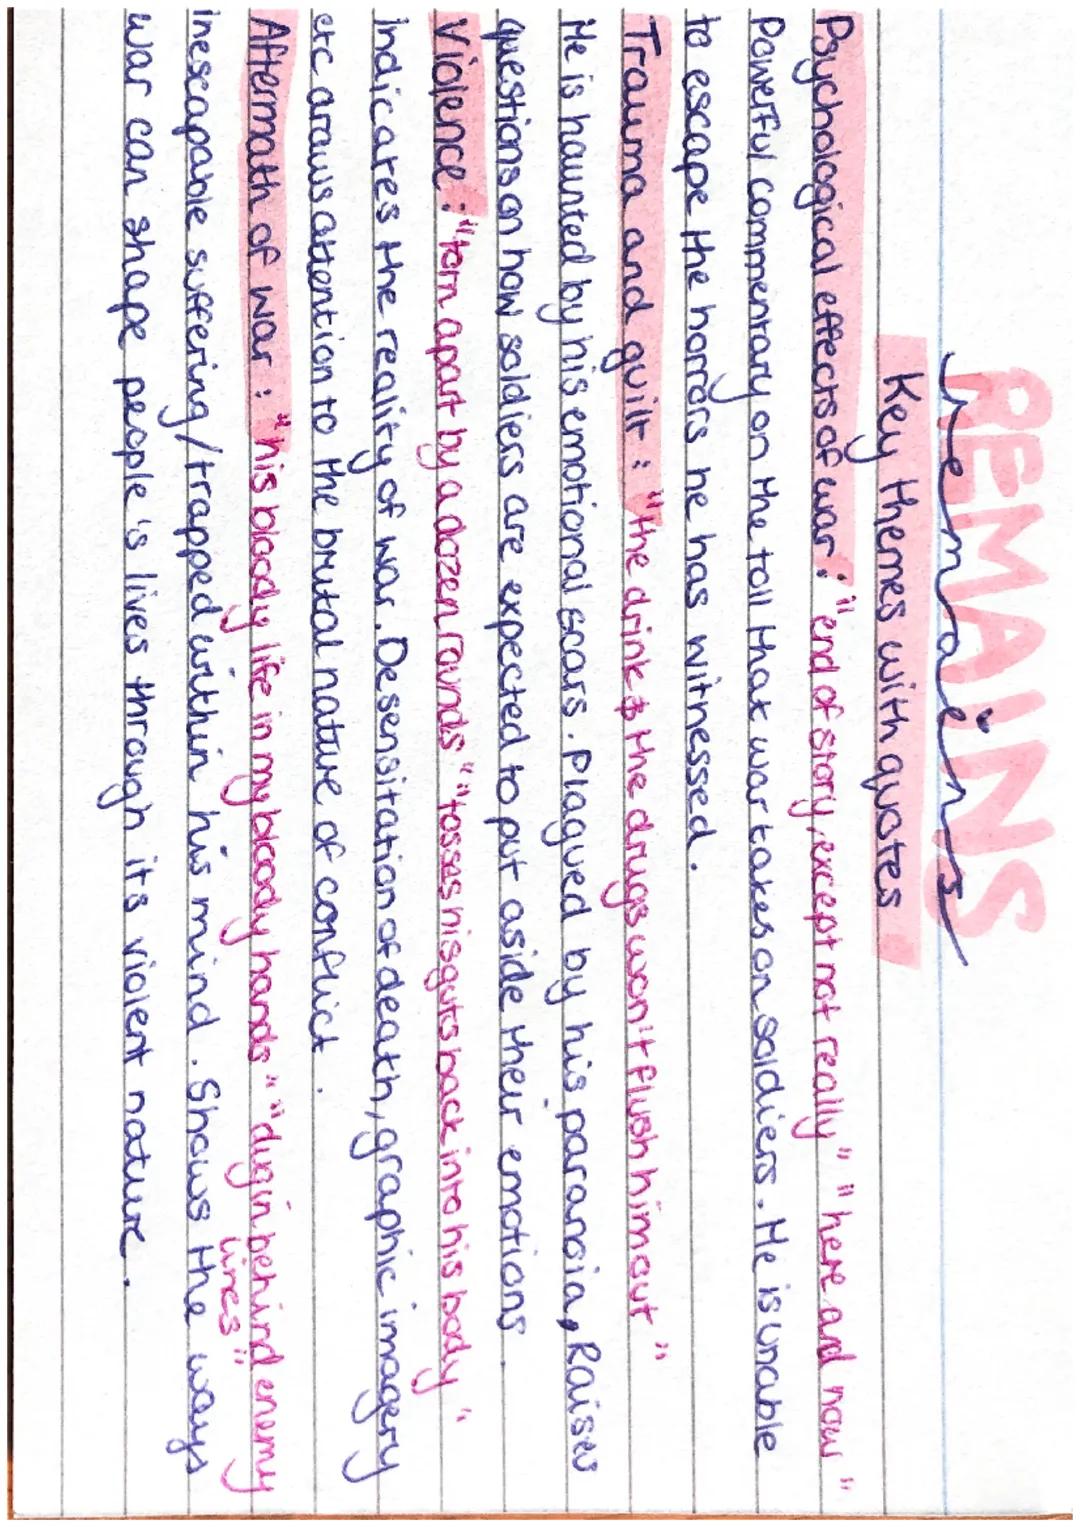 REMAINS
remains
Key themes with quotes
Psychological effects of war: "end of story, except not really" "here and now"
Powerful commentary on the toll that war takes on soldiers. He is unable
to escape the horrors he has witnessed.
Trauma and guilt: "the drink & the drugs won't flush him out"
He is haunted by his emotional scars. Plagued by his paranoia, Raises
questions on how soldiers are expected to put aside their emotions.
Violence: "torn apart by a dozen rounds" "tosses his guts back into his body"
Indicates the reality of war. Desensitation of death, graphic imagery
etc draws attention to the brutal nature of conflict.
Aftermath of war: "his bloody life in my bloody hands" "dug in behind enemy
lines"
inescapable suffering/trapped within his mind. Shows the ways
war can shape people's lives through its violent nature.